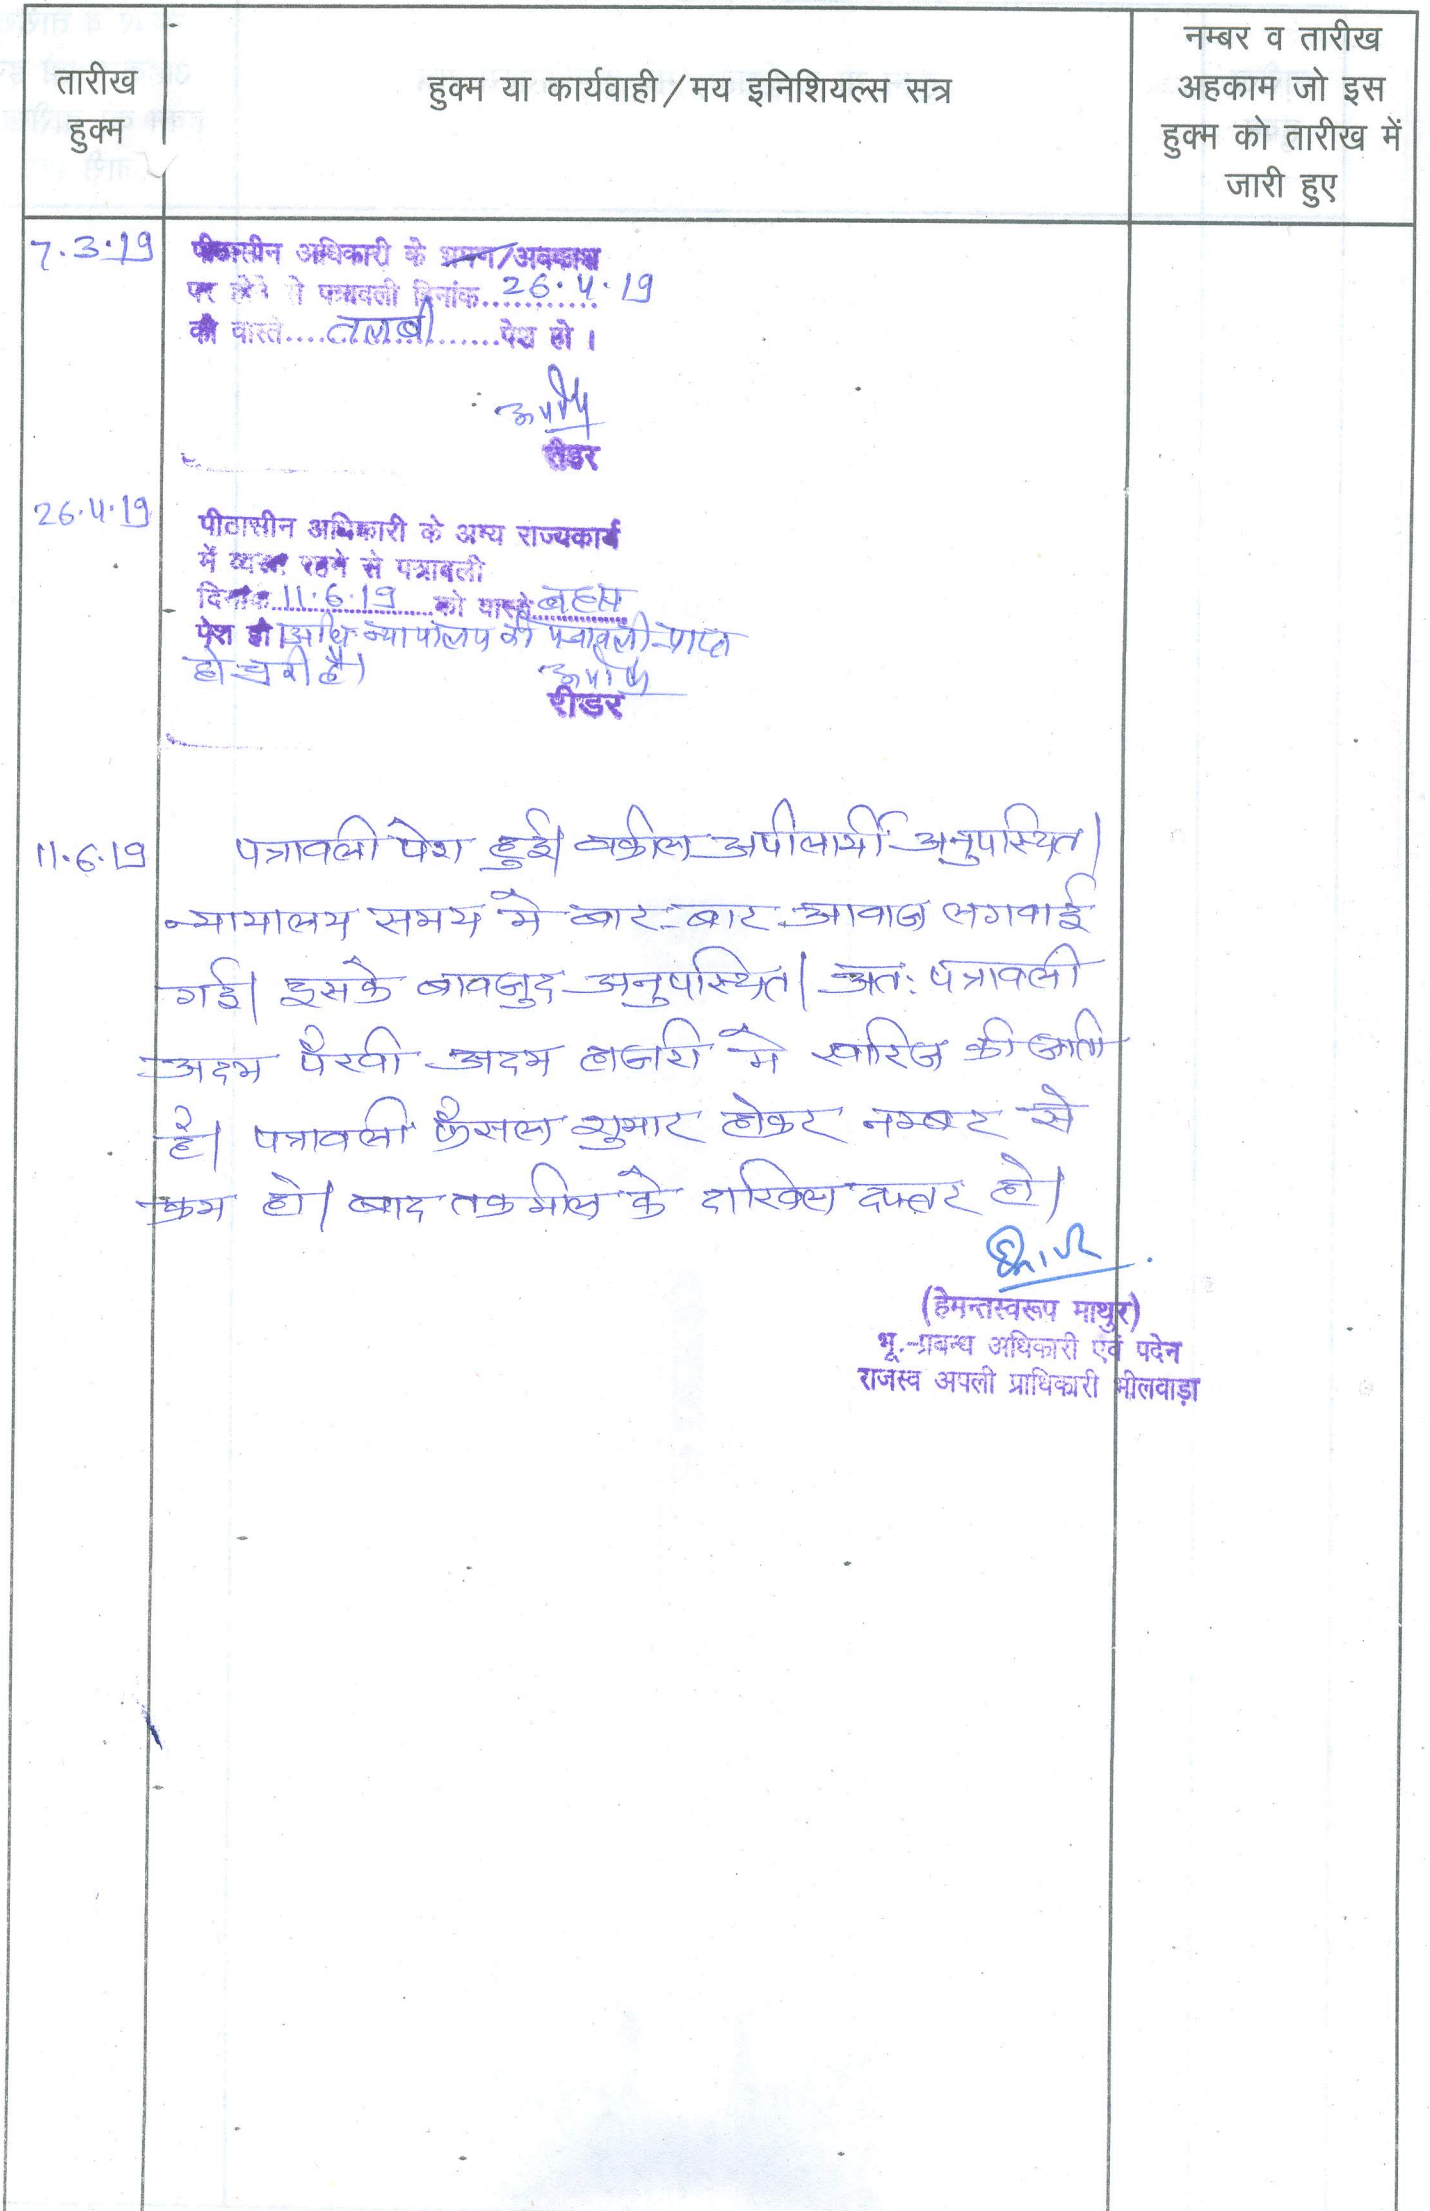 तारीख
हुक्म
हुक्म या कार्यवाही/मय इनिशियल्स सत्र
नम्बर व तारीख
अहकाम जो इस
हुक्म को तारीख में
जारी हुए
7.3.19
पीठासीन अधिकारी के भ्रमण/अवकाश
पर होने से पत्रावली दिनांक............26.4.19
को वास्ते....तलबी.......पेश हो ।
रीडर
26.4.19
पीठासीन अधिकारी के अन्य राज्यकार्य
में व्यस्त रहने से पत्रावली
दिनांक 11.6.19 को वास्ते बहस
पेश हो। अधि. न्यायालय की पत्रावली प्राप्त
हो चुकी है।
रीडर
11.6.19
पत्रावली पेश हुई। वकील अपीलार्थी अनुपस्थित।
न्यायालय समय मे बार-बार आवाज लगवाई
गई। इसके बावजुद अनुपस्थित। अतः पत्रावली
अदम पैरवी अदम हाजरी मे खारिज की जाती
है। पत्रावली फैसल शुमार होकर नम्बर से
कम हो। बाद तकमील के दाखिल दफ्तर हो।
(हेमन्तस्वरूप माथुर)
भू.-प्रबन्ध अधिकारी एवं पदेन
राजस्व अपली प्राधिकारी भीलवाड़ा